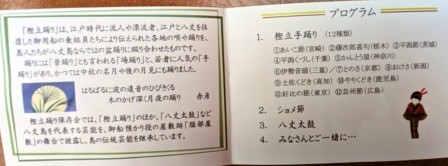 「樫立踊り」は、江戸時代に流人や漂流者、江戸と八丈を往
復した御用船の乗組員たちにより伝えられた各地の唄や踊りを、
島人たちが八丈島ならではの盆踊りに綴り合わせたものです。
踊りには「音頭」とも言われる「場踊り」と、若者に人気の「手
踊り」があり、かつては中社の名月や後の月見にも踊りました。
はるばるに波の遠音のひびきくる
木のかげ深し月夜の踊り　赤彦
樫立踊り保存会では、「樫立踊り」のほか、「八丈太鼓」など
八丈島を代表する芸能を、御船預かり役の屋敷跡「服部屋
敷」の舞台で披露し、島の伝統芸能を継承しています。
プログラム
1. 樫立手踊り（12種類）
①あいこ節(宮崎) ②藤次郎甚句(栃木) ③平面節(茨城)
④平潟くづし(千葉) ⑤かんとう屋(神奈川)
⑥伊勢音頭(三重) ⑦とのさ(京都) ⑧おけさ(新潟)
⑨土佐くどき(高知) ⑩ややくどき(鹿児島)
⑪好比の節(東京) ⑫芸州節(広島)
2. ショメ節
3. 八丈太鼓
4. みなさんとご一緒に…